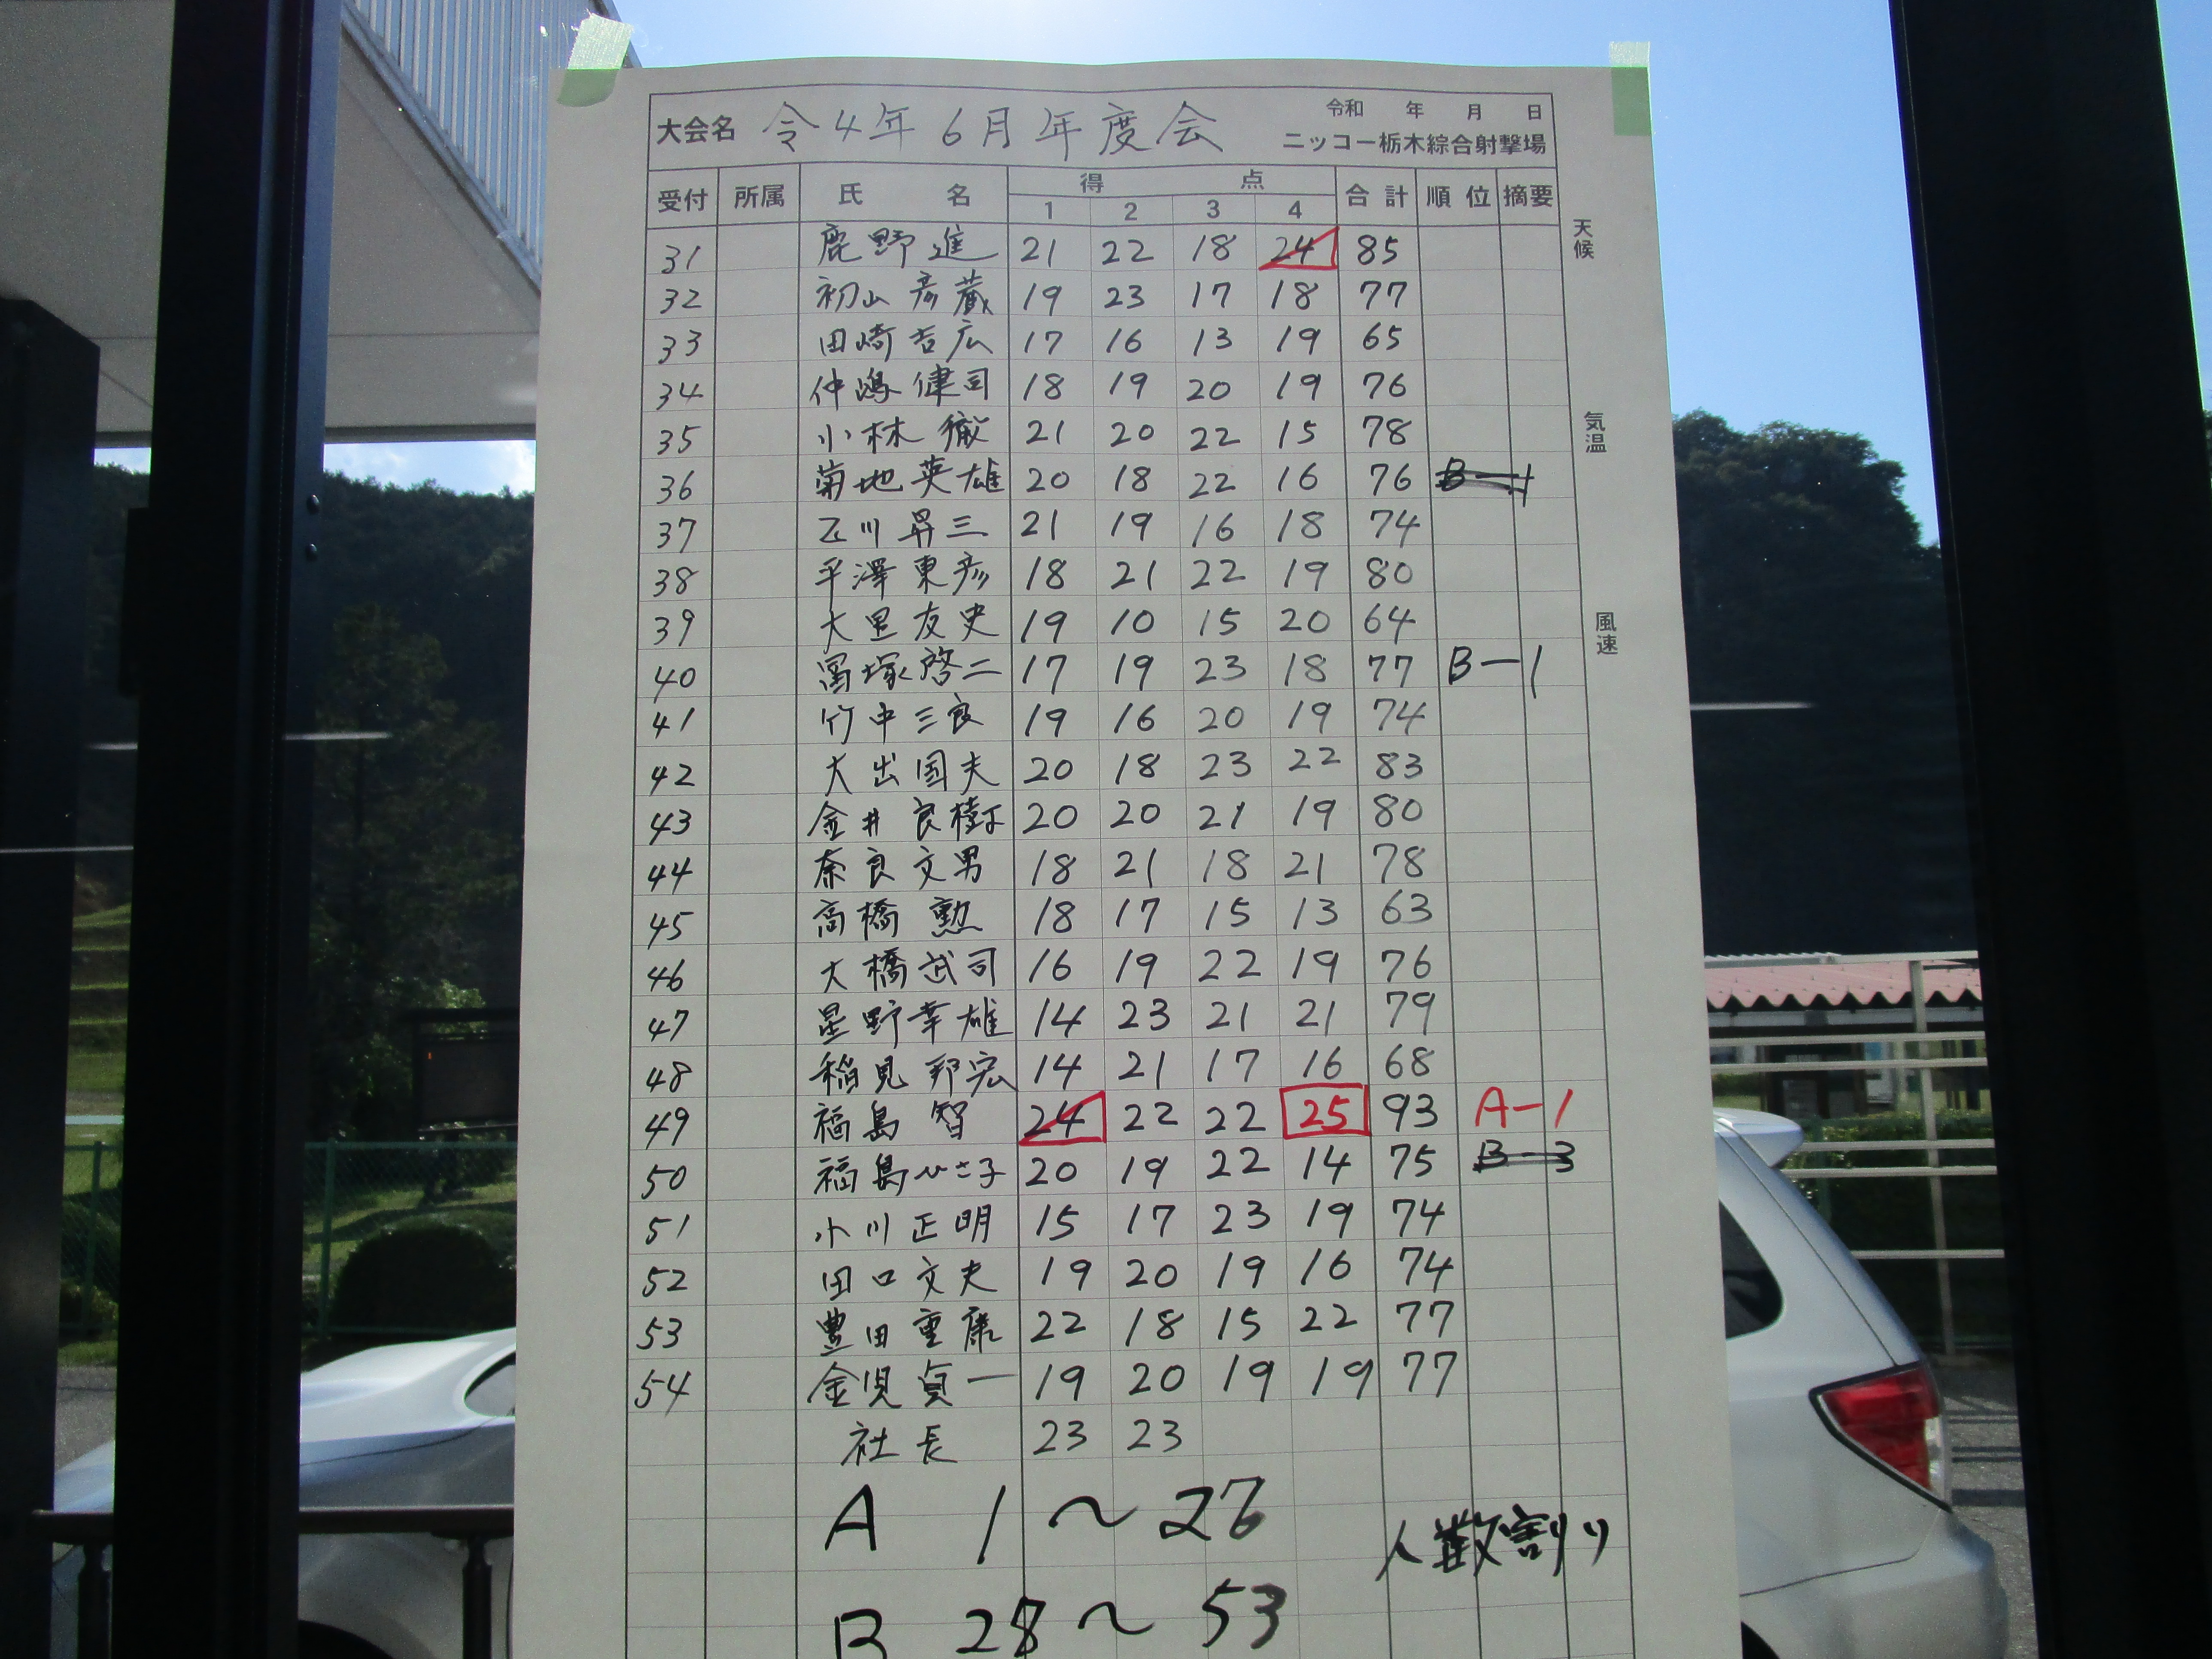 令和 年 月 日
大会名 令4年6月年度会
ニッコー栃木綜合射撃場
受付 所属 氏名 得点 合計 順位 摘要
1 2 3 4
天候
気温
風速
31 鹿野進 21 22 18 24 85
32 初山彦蔵 19 23 17 18 77
33 田崎吉広 17 16 13 19 65
34 仲嶋健司 18 19 20 19 76
35 小林徹 21 20 22 15 78
36 菊地英雄 20 18 22 16 76 B-1
37 川昇三 21 19 16 18 74
38 平澤東彦 18 21 22 19 80
39 大里友史 19 10 15 20 64
40 冨塚啓二 17 19 23 18 77 B-1
41 竹中三良 19 16 20 19 74
42 大出国夫 20 18 23 22 83
43 金井良樹 20 20 21 19 80
44 奈良文男 18 21 18 21 78
45 高橋勲 18 17 15 13 63
46 大橋武司 16 19 22 19 76
47 星野幸雄 14 23 21 21 79
48 稲見邦宏 14 21 17 16 68
49 福島智 24 22 22 25 93 A-1
50 福島ひさ子 20 19 22 14 75 B-3
51 小川正明 15 17 23 19 74
52 田口文夫 19 20 19 16 74
53 豊田重康 22 18 15 22 77
54 金児貞一 19 20 19 19 77
社長 23 23
A 1〜26
人数割り
B 28〜53